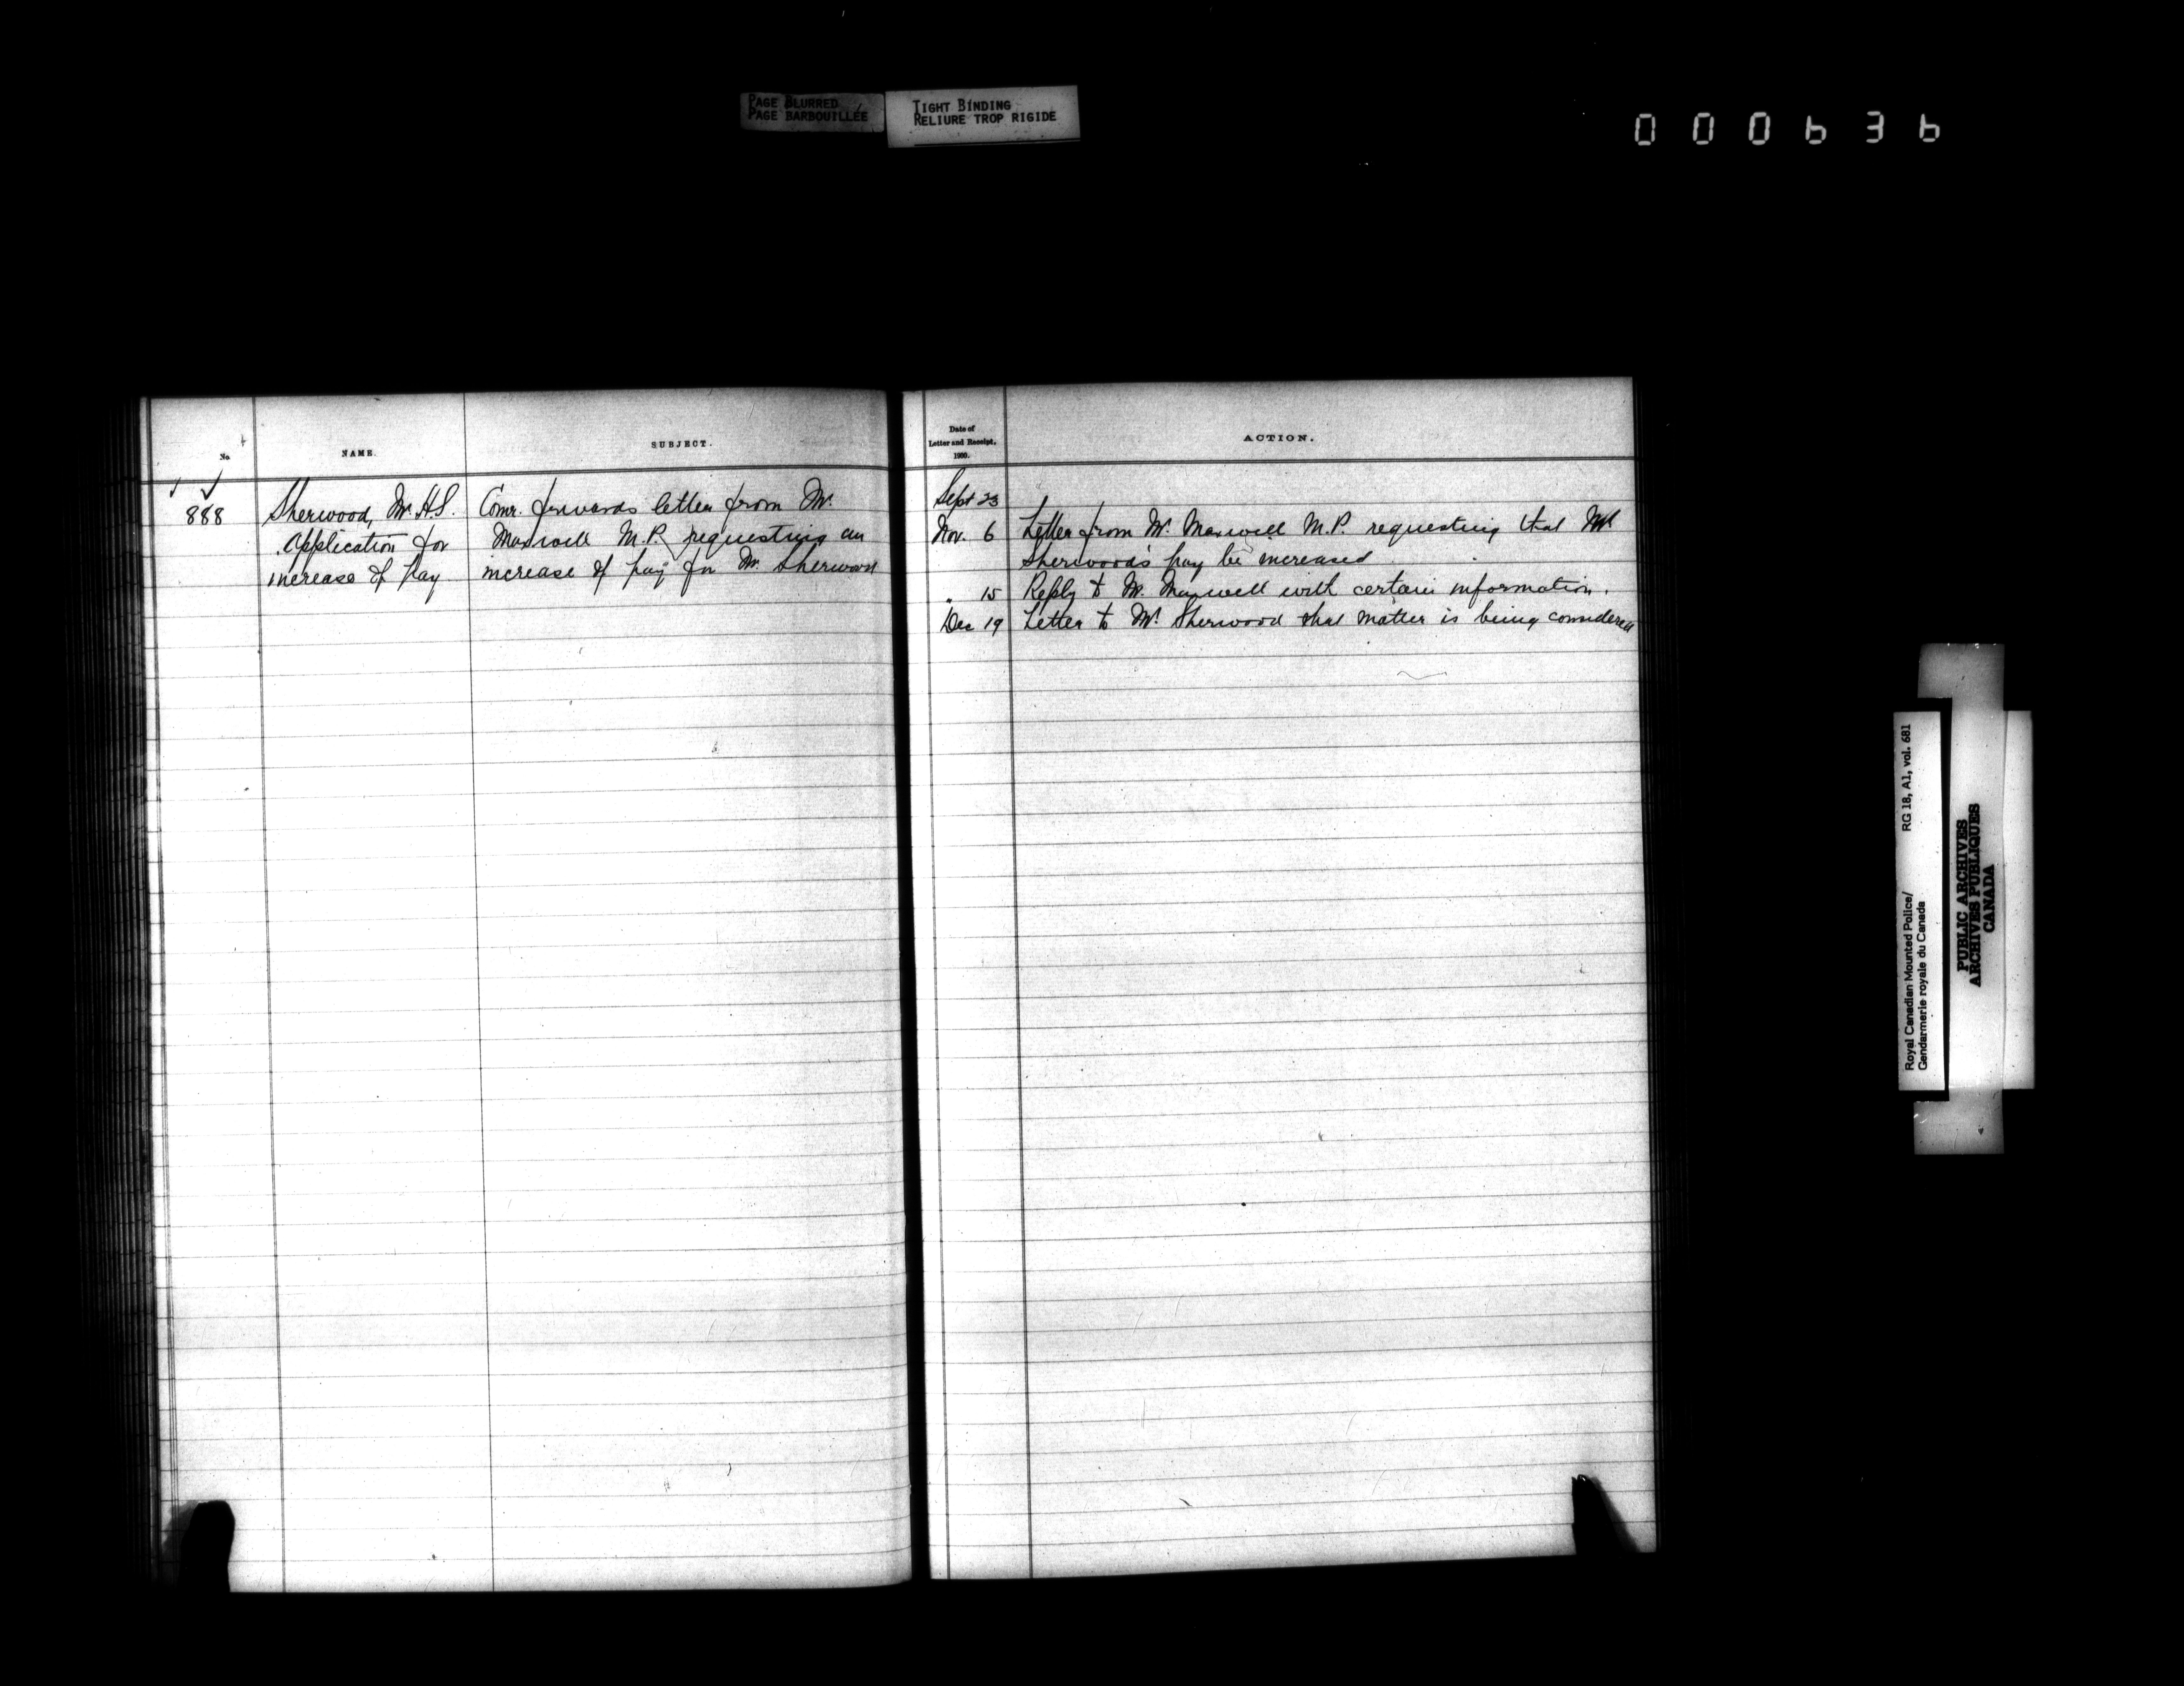 PAGE BLURRED
PAGE BARBOUILLÉE
TIGHT BINDING
RELIURE TROP RIGIDE
000636
No.
NAME.
SUBJECT.
888
Sherwood, Mr. H.S.
Application for
increase of pay
Comr. forwards letter from Mr.
Maxwell M.P. requesting an
increase of pay for Mr. Sherwood
Date of
Letter and Receipt,
1900.
ACTION.
Sept 23
Nov. 6 Letter from Mr. Maxwell M.P. requesting that Mr
Sherwood's pay be increased
" 15 Reply to Mr. Maxwell with certain information.
Dec 19 Letter to Mr. Sherwood that matter is being considered
Royal Canadian Mounted Police/ RG 18, A1, vol. 681
Gendarmerie royale du Canada
PUBLIC ARCHIVES
ARCHIVES PUBLIQUES
CANADA